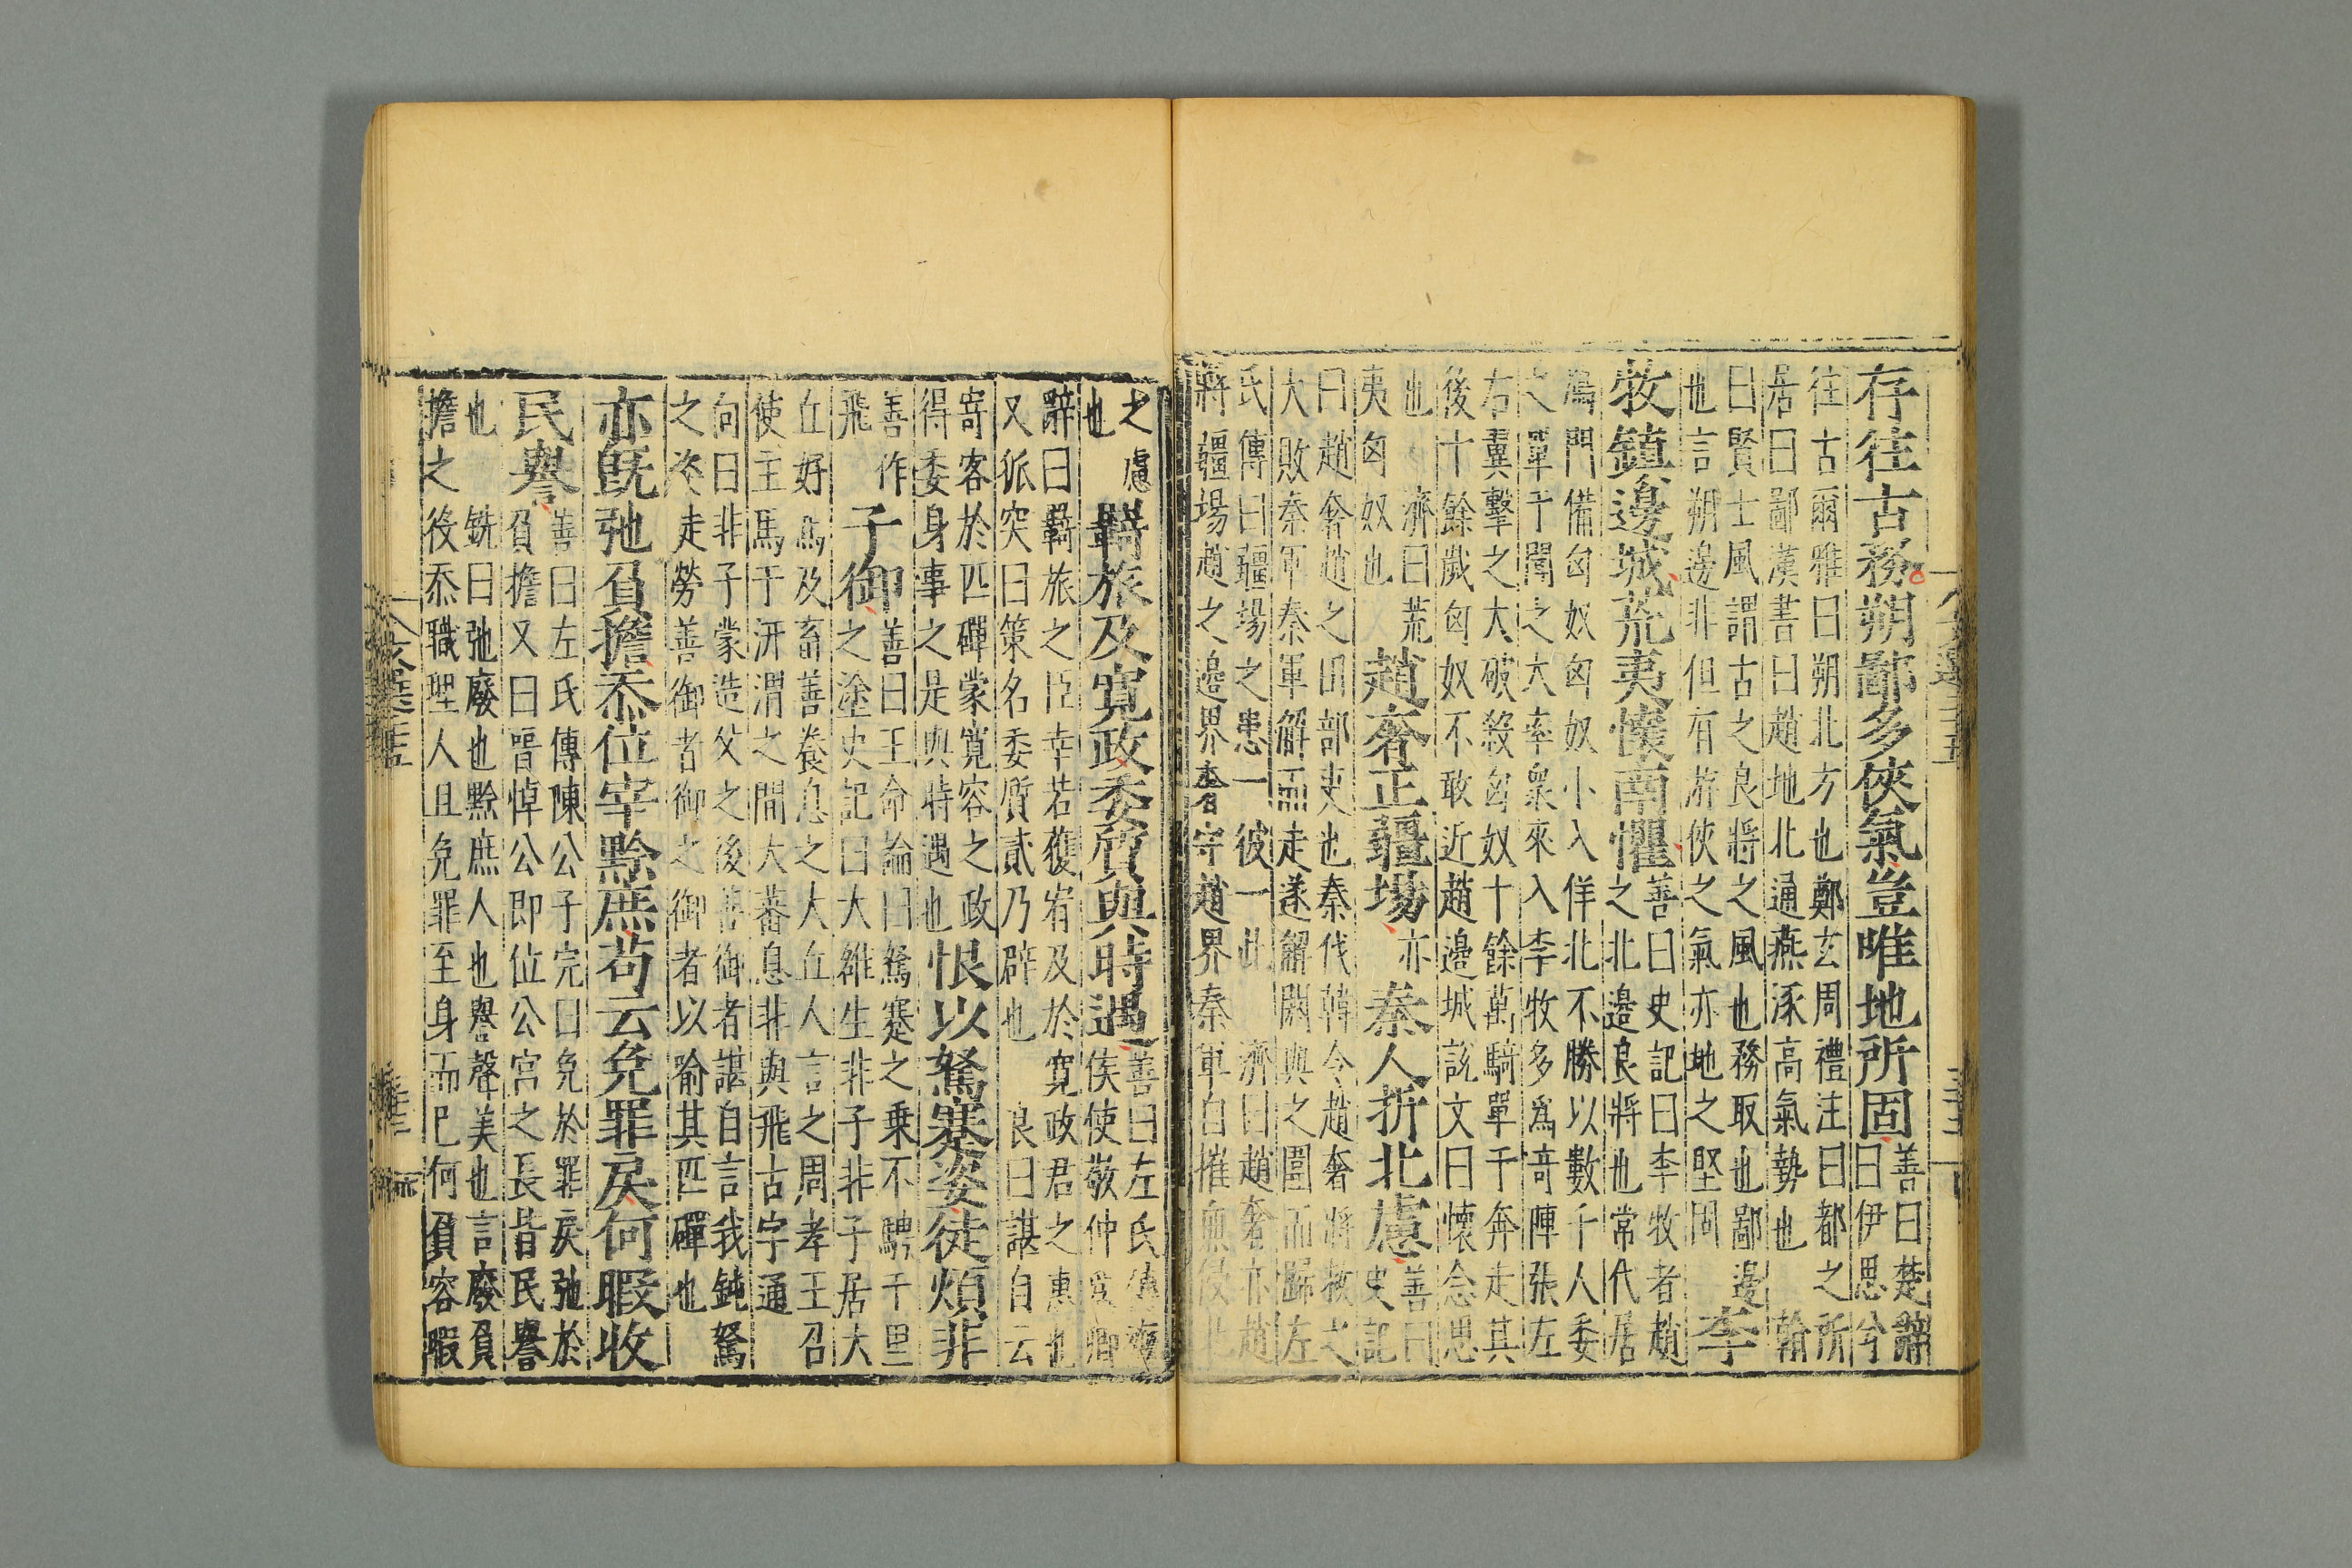 存往古務朔鄙多俠氣豈唯地所固善曰楚辭
曰伊思兮
往古爾雅曰朔北方也鄭玄周禮注曰都之所
居曰鄙漢書曰趙地北通燕涿高氣勢也 翰
曰賢士風謂古之良將之風也務取也鄙邊
也言朔邊非但有游俠之氣亦地之堅固 李
牧鎮邊城荒夷懷南懼善曰史記曰李牧者趙
之北邊良將也常代居
鴈門備匈奴匈奴小入佯北不勝以數千人委
之單于聞之大率衆來入李牧多爲奇陣張左
右翼擊之大破殺匈奴十餘萬騎單于奔走其
後十餘歲匈奴不敢近趙邊城該文曰懷念思
也 濟曰荒
夷匈奴也 趙奢正疆場亦秦人折北慮善曰
史記
曰趙奢趙之田部吏也秦伐韓令趙奢將救之
大敗秦軍秦軍解而走遂解閼與之圍而歸左
氏傳曰疆場之患一彼一此 濟曰趙奢亦趙
將疆場趙之邊界本名守趙界秦軍自摧無侵北
之慮
也 羇旅及寬政委質與時遇善曰左氏傳齊
侯使敬仲爲卿
辭曰羇旅之臣幸若獲宥及於寬政君之惠也
又狐突曰策名委質貳乃辟也 良曰諶自云
寄客於匹磾蒙寬容之政
得委身事之是與時遇也 恨以駑蹇姿徒煩非
善作
飛 子御善曰王命論曰駑蹇之乗不騁千里
之塗史記曰大雒生非子非子居大
丘好馬及畜善養息之大丘人言之周孝王召
使主馬于汧渭之間大蕃息非與飛古字通
向曰非子蒙造父之後善御者諶自言我鈍駑
之姿走勞善御者御之御者以喻其匹磾也
亦旣弛負擔忝位宰黔庶苟云免罪戾何暇收
民譽善曰左氏傳陳公子完曰免於罪戾弛於
負擔又曰晉悼公即位公宮之長皆民譽
也 銑曰弛廢也黔庶人也譽聲美也言廢負
擔之役忝職理人且免罪至身而已何負容暇